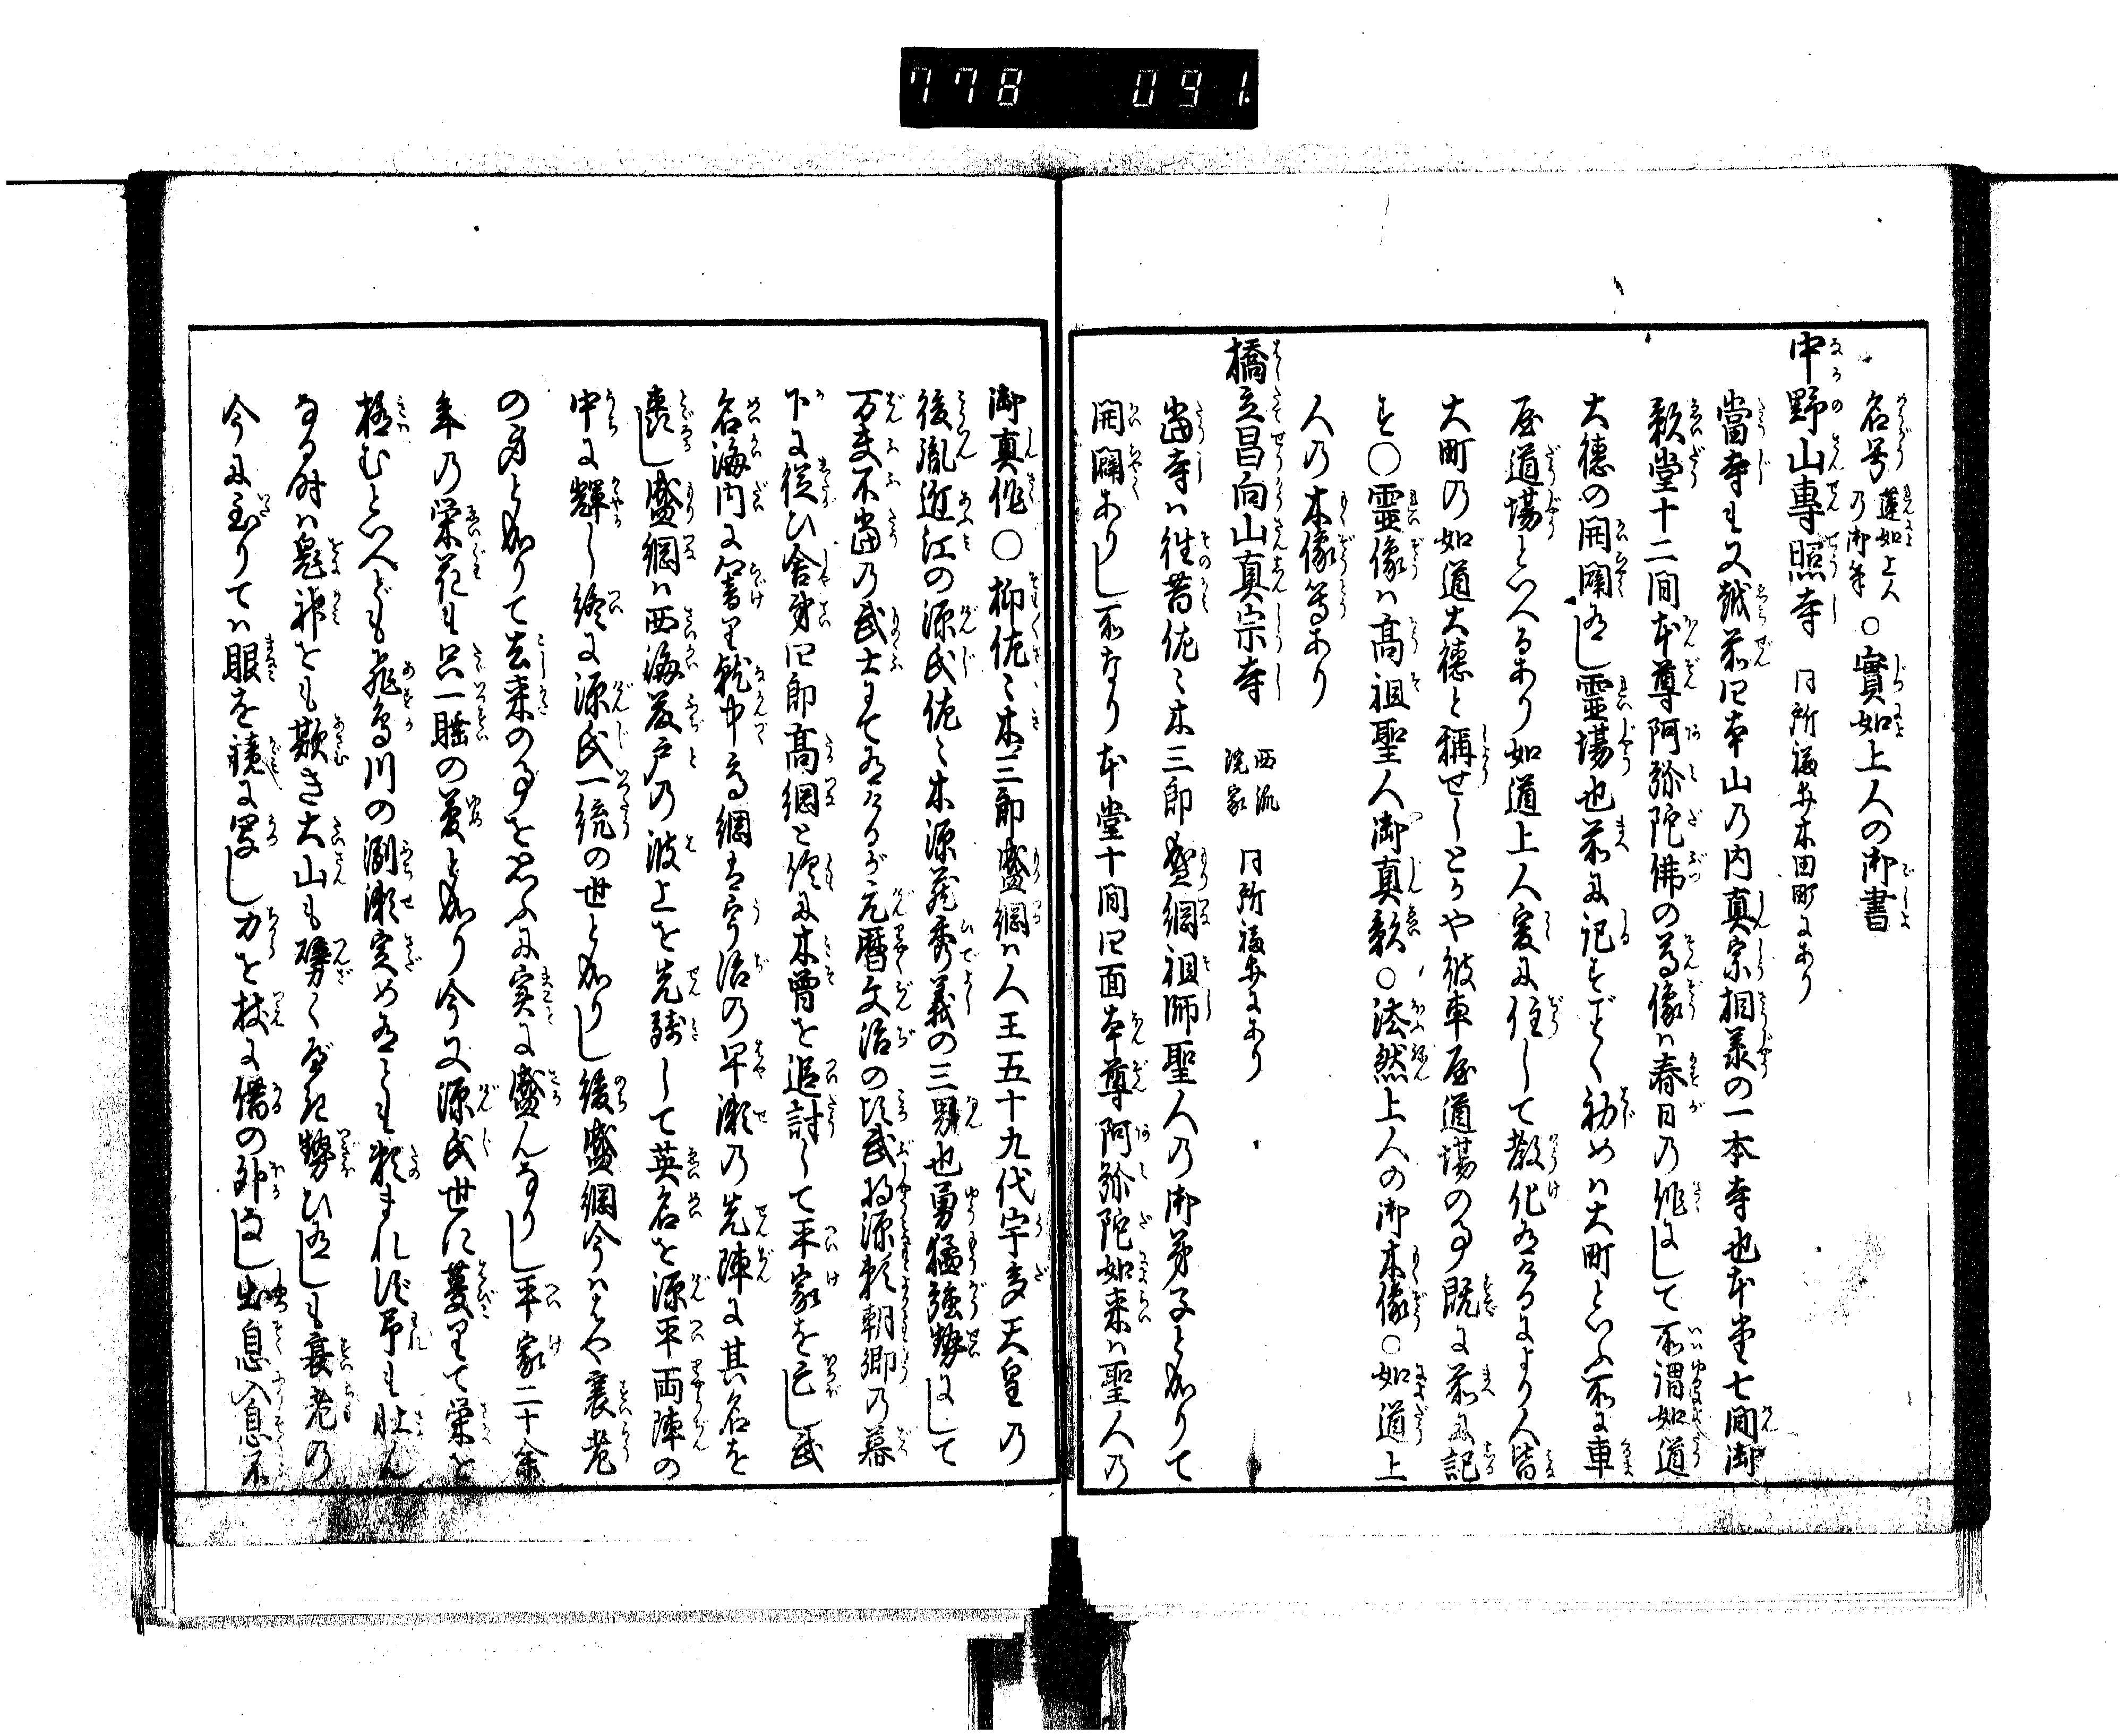 778 091.
名号蓮如上人の御筆○實如上人の御書
中野山專照寺 同所福井木田町にあり
當寺も又越前四本山の内真宗相羕の一本寺也本堂七間御
影堂十二間本尊阿弥陀佛の尊像ハ春日の作にして所謂如道
大德の開闢ありし靈場也前に記すごとく初めハ大町といふ所に車
屋道場といへるあり如道上人爰に住して教化ありけるより人皆
大町の如道大德と稱せしとかや彼車屋道場の事既に前に記
す○靈像ハ高祖聖人御真影○法然上人の御木像○如道上
人の木像等あり
橋立昌向山真宗寺 西流院家 同所福井にあり
當寺ハ往昔佐々木三郎盛綱祖師聖人の御弟子と成りて
開闢ありし所なり本堂十間四面本尊阿弥陀如来ハ聖人の
御真作○抑佐々木三郎盛綱ハ人王五十九代宇多天皇の
後胤近江の源氏佐々木源蔵秀義の三男也勇猛強勢にして
万夫不當の武士にてありけるが元暦文治の頃武将源頼朝卿の幕
下に従ひ舎弟四郎高綱と倶に木曽を追討して平家を亡し武
名海内に響り就中高綱は宇治の早瀬の先陣に其名を
轟し盛綱ハ西海藤戸の波上を先駈して英名を源平両陣の
中に輝し終に源氏一統の世と成りし後盛綱今ハはや衰老
の身と成りて去来の事を思ふに実に盛んなりし平家二十余
年の栄花も只一睡の夢と成り今又源氏世に蔓りて栄を
極むといへども飛鳥川の淵瀬定めなくも頼まれず予も壮ん
なる時ハ鬼神をも欺き大山も劈くべき勢ひありしも衰老の
今に至りてハ眼を鏡に写し力を杖に借の外なし出息入息不